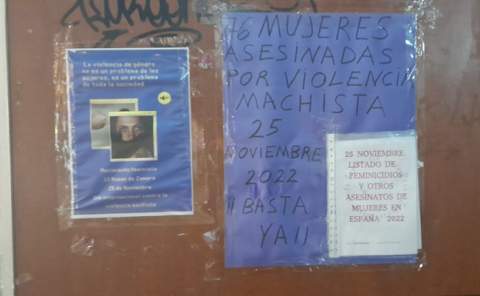 La violencia de género
no es un problema de las
mujeres, es un problema
de toda la sociedad
Movimiento Feminista
de Zamora
25 de Noviembre
76 MUJERES
ASESINADAS
POR VIOLENCIA
MACHISTA
25
NOVIEMBRE
2022
¡¡ BASTA
YA!!
25 NOVIEMBRE
LISTADO DE
FEMINICIDIOS
Y OTROS
ASESINATOS DE
MUJERES EN
ESPAÑA 2022